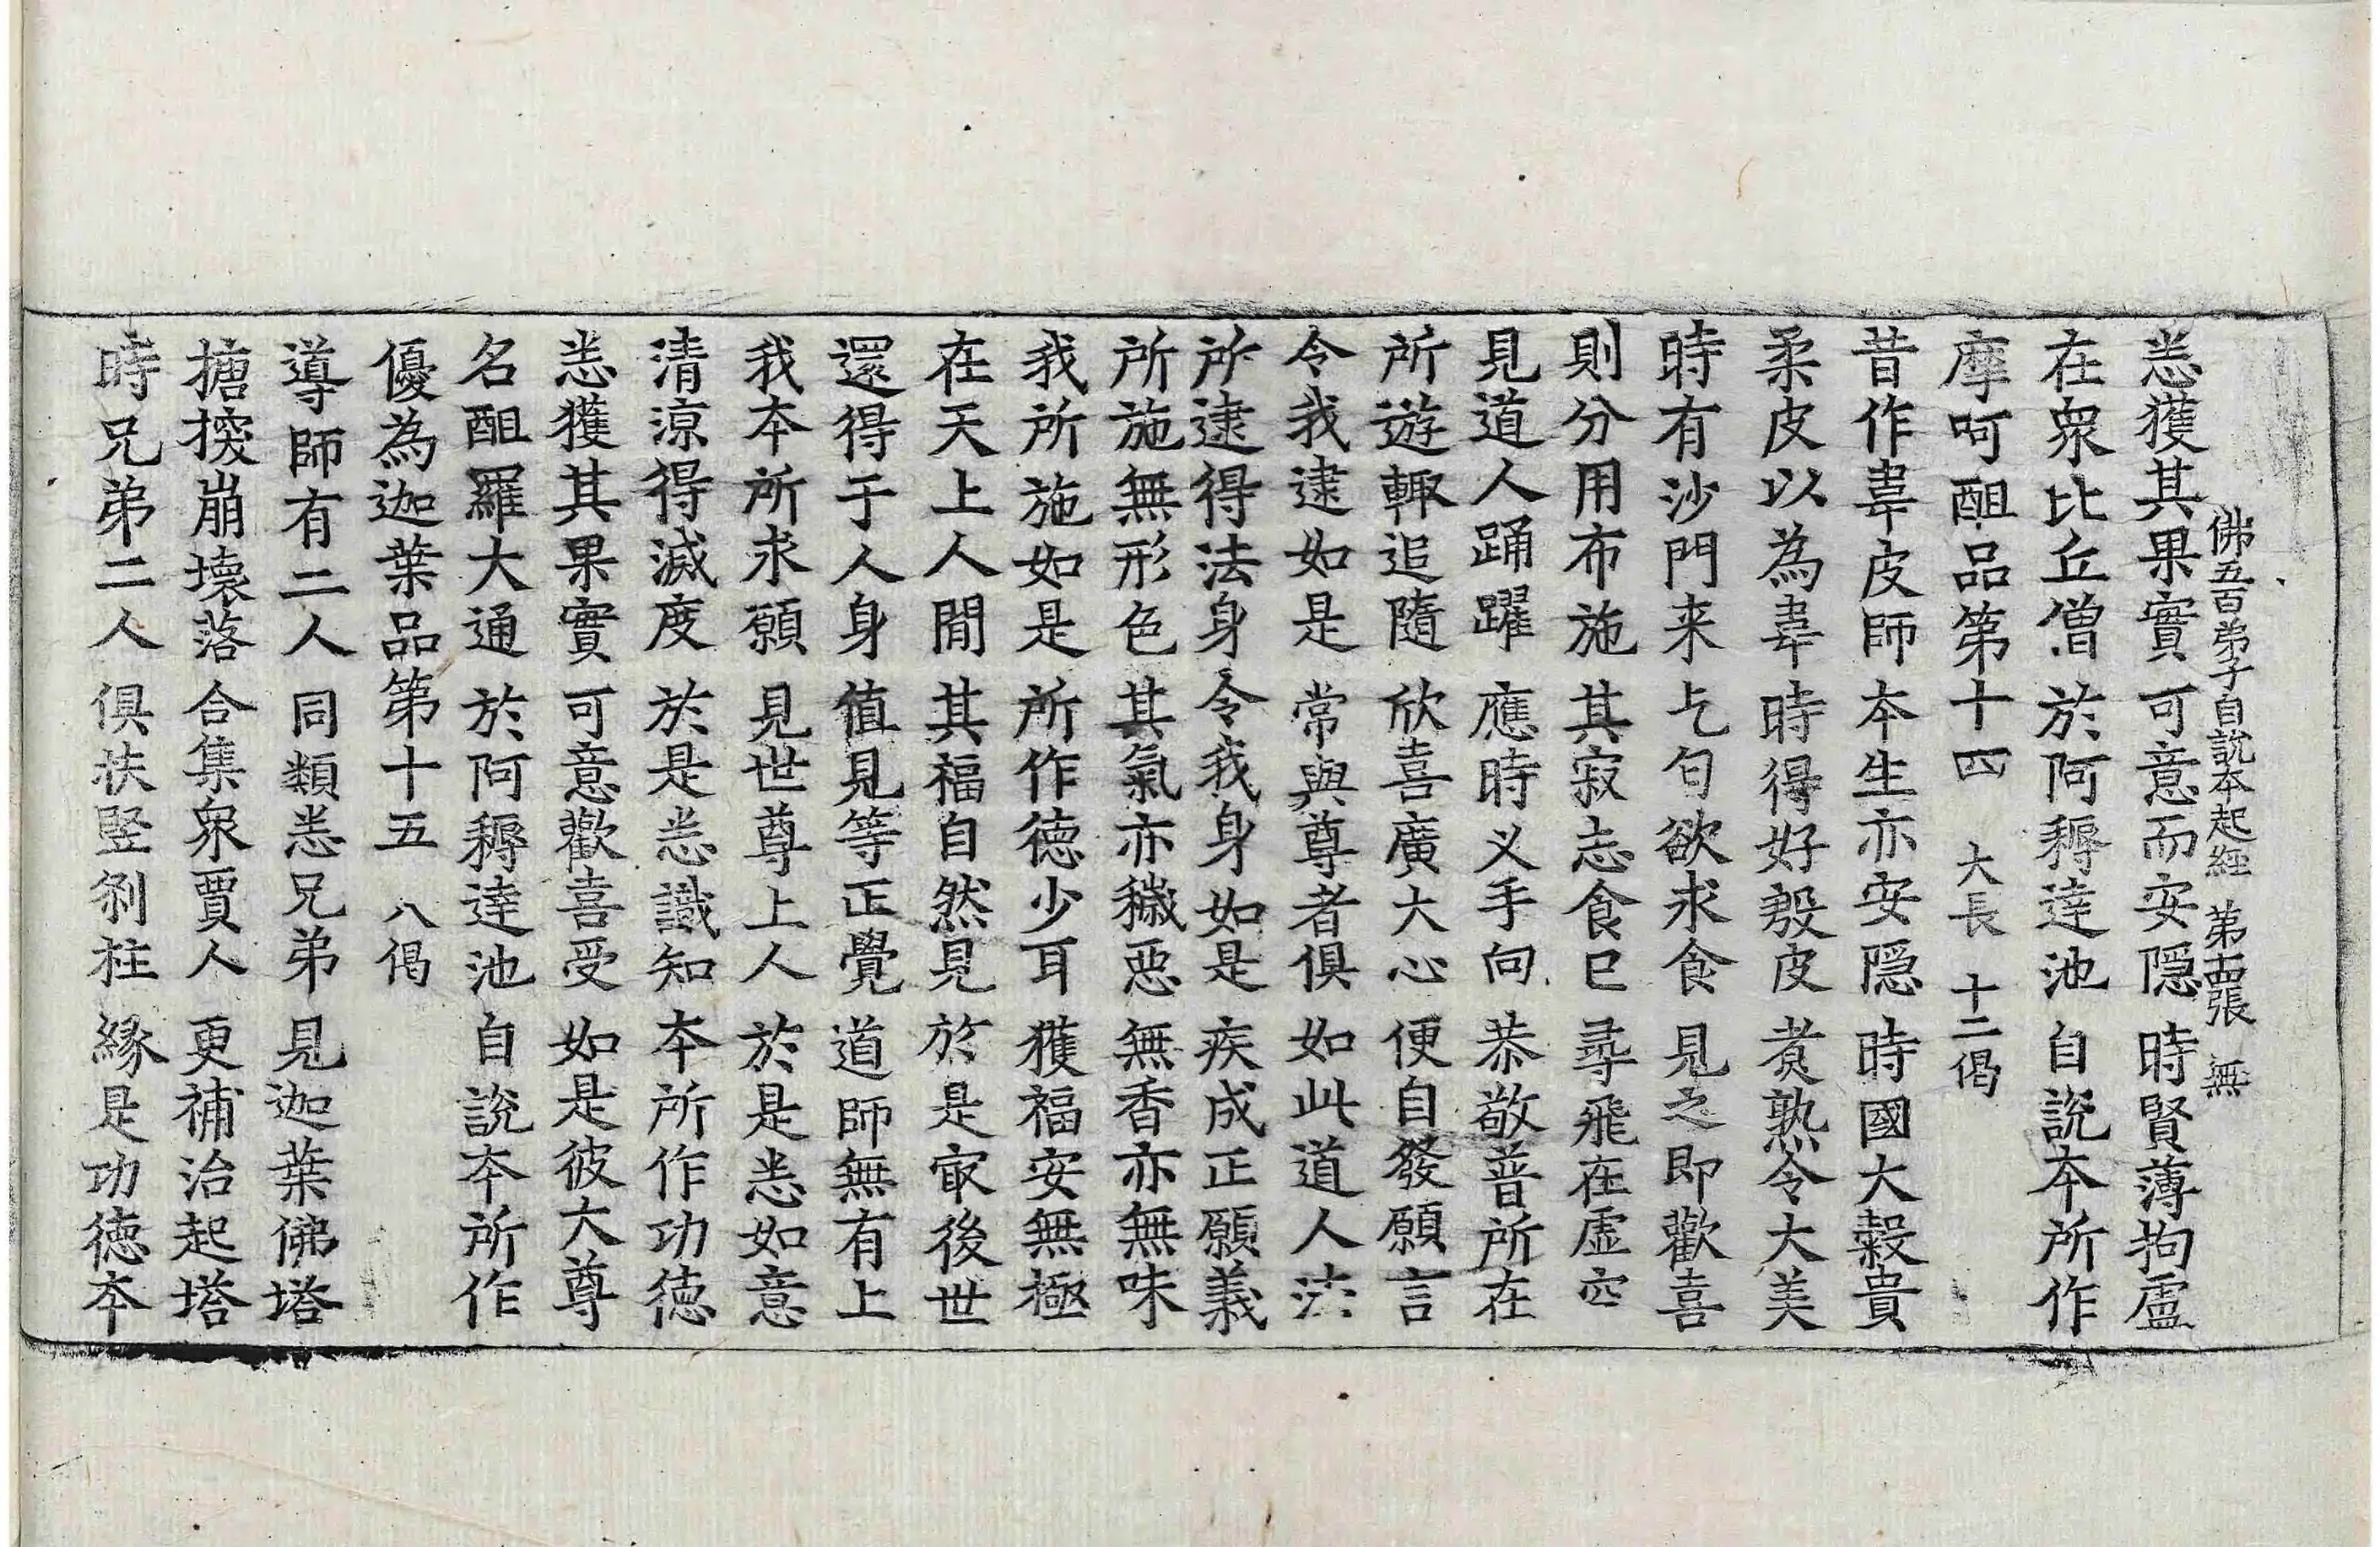 佛五百弟子自說本起經 第十四張 無
恙獲其果實 可意而安隱 時賢薄拘盧
在眾比丘僧 於阿耨達池 自說本所作
摩呵䣯品第十四 大長 十二偈
昔作韋皮師 本生亦安隱 時國大穀貴
柔皮以為韋 時得好㲉皮 煮熟令大美
時有沙門来 乞匂欲求食 見之即歡喜
則分用布施 其寂志食已 尋飛在虛空
見道人踊躍 應時义手向 恭敬普所在
所遊輙追隨 欣喜廣大心 便自發願言
令我逮如是 常與尊者俱 如此道人法
所逮得法身 令我身如是 疾成正願義
所施無形色 其氣亦穢惡 無香亦無味
我所施如是 所作德少耳 獲福安無極
在天上人間 其福自然見 於是㝡後世
還得于人身 值見等正覺 道師無有上
我本所求願 見世尊上人 於是悉如意
清涼得滅度 於是悉識知 本所作功德
悉獲其果實 可意歡喜受 如是彼大尊
名䣯羅大通 於阿耨達池 自說本所作
優為迦葉品第十五 八偈
導師有二人 同類悉兄弟 見迦葉佛塔
搪揬崩壞落 合集眾賈人 更補治起塔
時兄弟二人 俱扶竪剎柱 緣是功德本